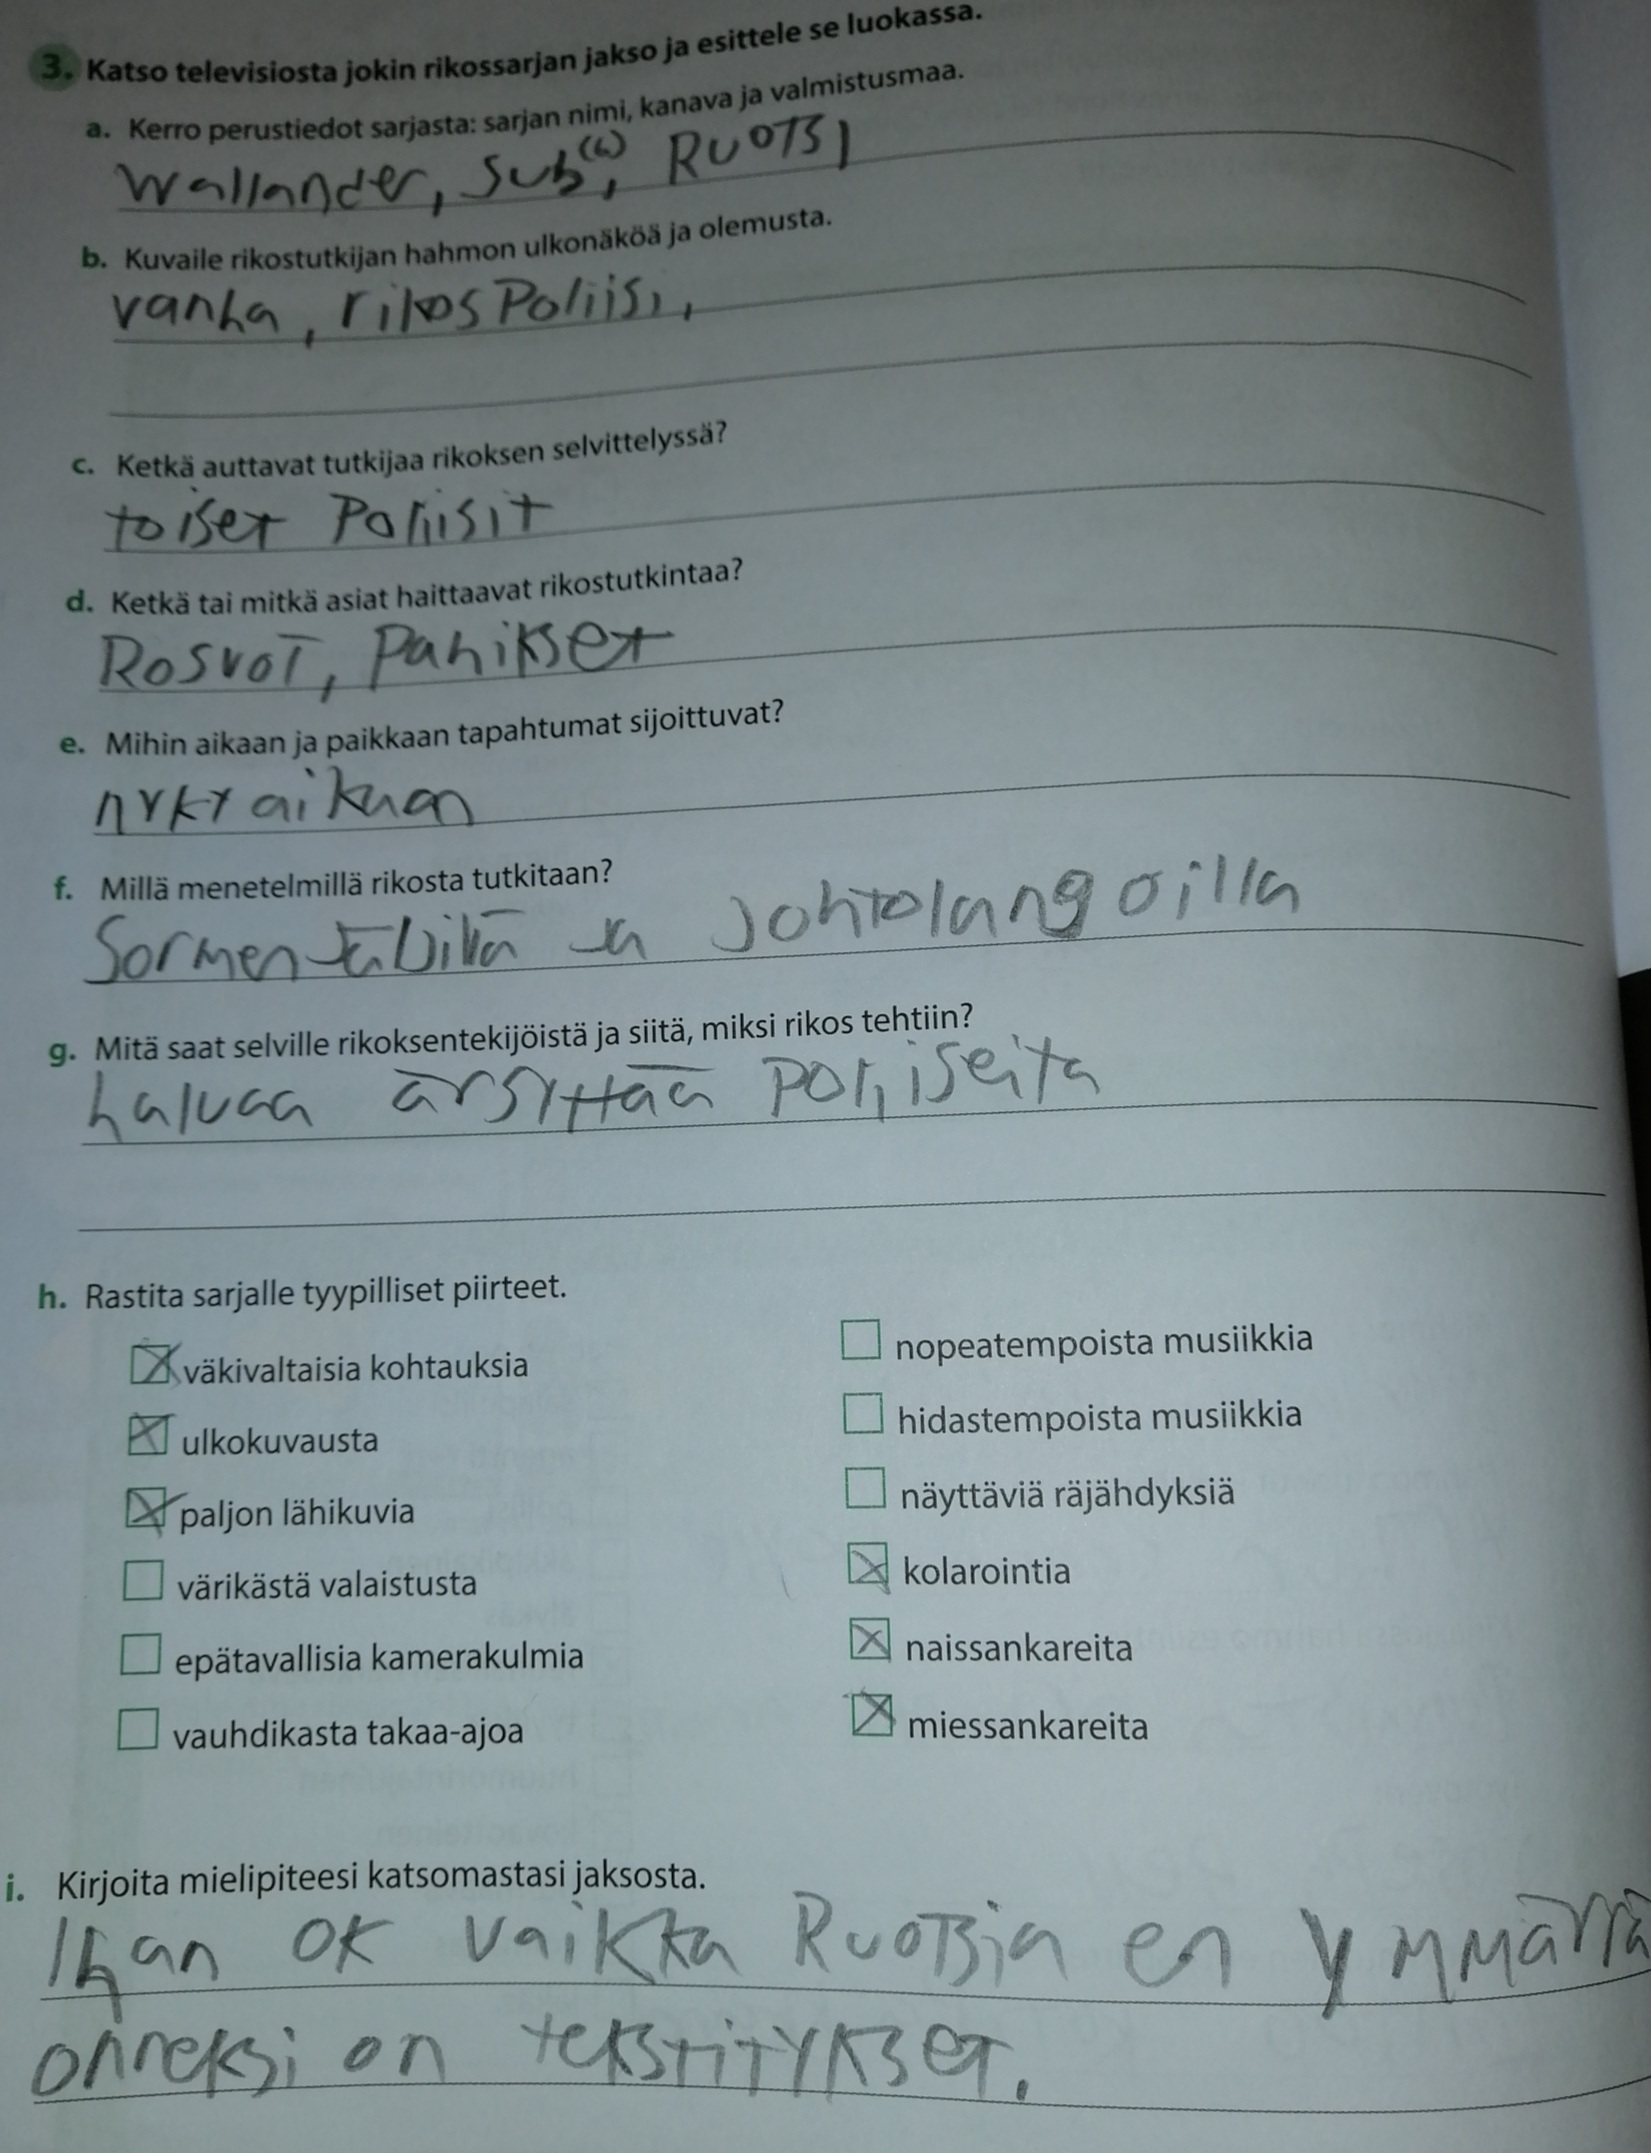 3. Katso televisiosta jokin rikossarjan jakso ja esittele se luokassa.
a. Kerro perustiedot sarjasta: sarjan nimi, kanava ja valmistusmaa.
Wallander, Sub, RUOTSI
b. Kuvaile rikostutkijan hahmon ulkonäköä ja olemusta.
vanha, rikospoliisi,
c. Ketkä auttavat tutkijaa rikoksen selvittelyssä?
toiset Poliisit
d. Ketkä tai mitkä asiat haittaavat rikostutkintaa?
Rosvot, Pahikset
e. Mihin aikaan ja paikkaan tapahtumat sijoittuvat?
nykyaikaan
f. Millä menetelmillä rikosta tutkitaan?
Sormenjäljillä ja Johtolangoilla
g. Mitä saat selville rikoksentekijöistä ja siitä, miksi rikos tehtiin?
haluaa ärsyttää poliiseita
h. Rastita sarjalle tyypilliset piirteet.
väkivaltaisia kohtauksia
ulkokuvausta
paljon lähikuvia
värikästä valaistusta
epätavallisia kamerakulmia
vauhdikasta takaa-ajoa
nopeatempoista musiikkia
hidastempoista musiikkia
näyttäviä räjähdyksiä
kolarointia
naissankareita
miessankareita
i. Kirjoita mielipiteesi katsomastasi jaksosta.
Ihan OK vaikka Ruotsia en ymmärrä
onneksi on tekstitykset.